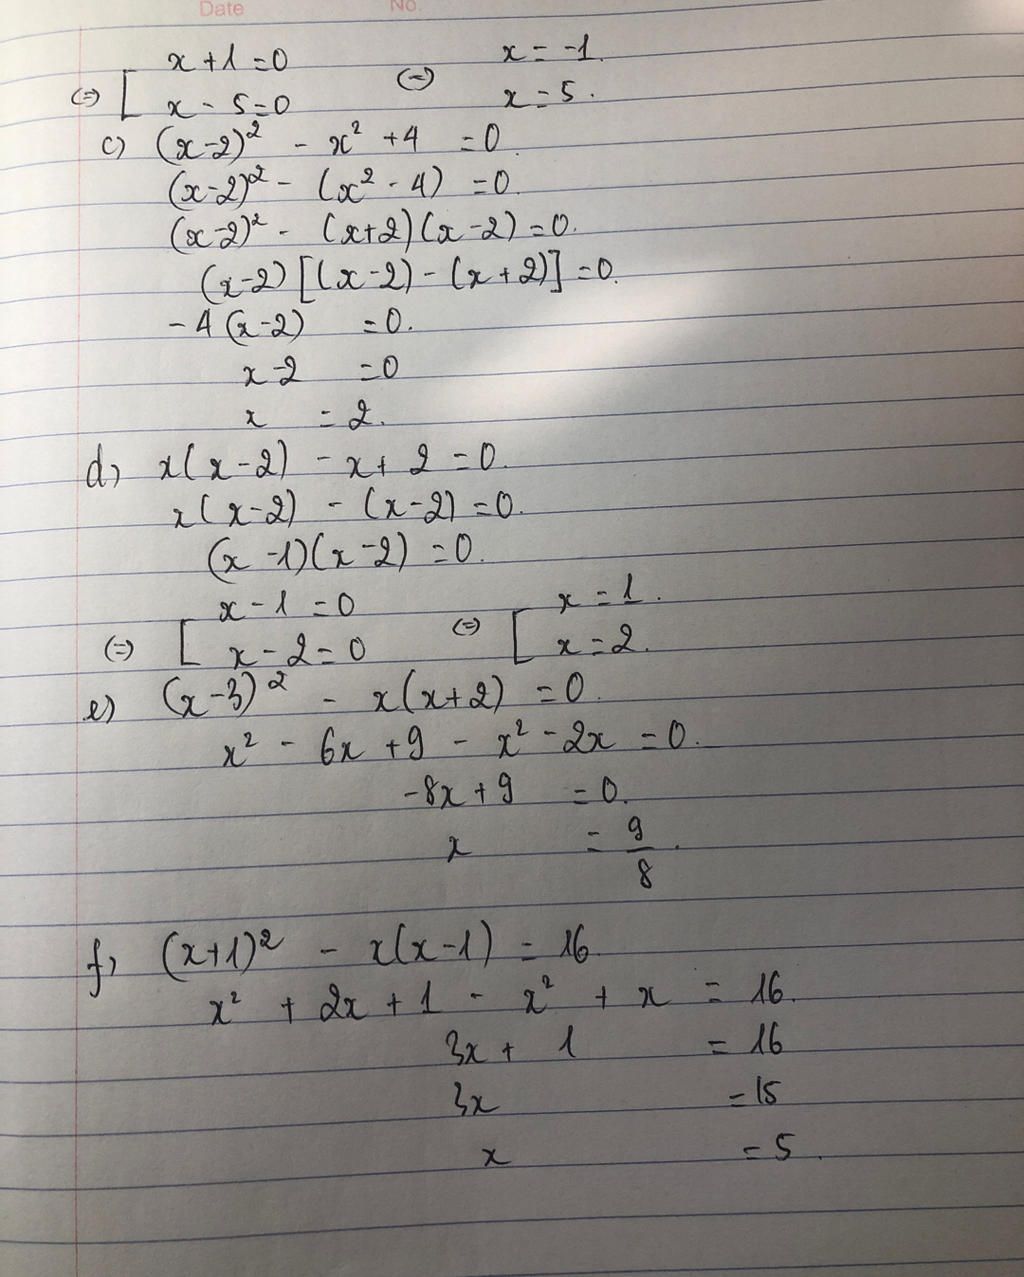 Date No.
x + 1 = 0 x = -1.
(=) [ (=)
x - 5 = 0 x = 5.
c) (x-2)² - x² + 4 = 0.
(x-2)² - (x² - 4) = 0.
(x-2)² - (x+2)(x-2) = 0.
(x-2)[(x-2) - (x+2)] = 0.
-4(x-2) = 0.
x - 2 = 0
x = 2.
d) x(x-2) - x + 2 = 0.
x(x-2) - (x-2) = 0.
(x-1)(x-2) = 0.
x - 1 = 0 x = 1.
(=) [ (=) [
x - 2 = 0 x = 2.
e) (x-3)² - x(x+2) = 0.
x² - 6x + 9 - x² - 2x = 0.
-8x + 9 = 0.
x = 9/8.
f) (x+1)² - x(x-1) = 16.
x² + 2x + 1 - x² + x = 16.
3x + 1 = 16
3x = 15
x = 5.